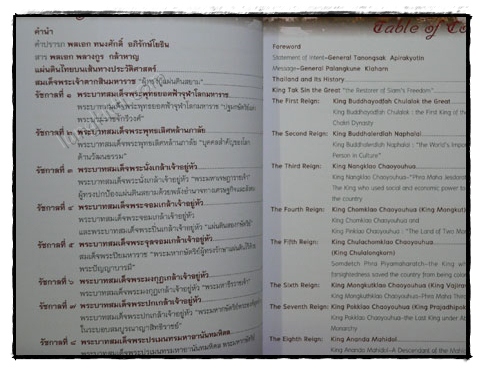 คำนำ
คำปรารภ พลเอก ทนงศักดิ์ อภิรักษ์โยธิน
สาร พลเอก พลางกูร กล้าหาญ
แผ่นดินไทยบนเส้นทางประวัติศาสตร์
สมเด็จพระเจ้าตากสินมหาราช
รัชกาลที่ ๑ พระบาทสมเด็จพระพุทธยอดฟ้าจุฬาโลกมหาราช
พระบาทสมเด็จพระพุทธยอดฟ้าจุฬาโลกมหาราช
รัชกาลที่ ๒ พระบาทสมเด็จพระพุทธเลิศหล้านภาลัย
พระบาทสมเด็จพระพุทธเลิศหล้านภาลัย "บุคคลสำคัญของโลก
ด้านวัฒนธรรม"
รัชกาลที่ ๓ พระบาทสมเด็จพระนั่งเกล้าเจ้าอยู่หัว
พระบาทสมเด็จพระนั่งเกล้าเจ้าอยู่หัว
รัชกาลที่ ๔ พระบาทสมเด็จพระจอมเกล้าเจ้าอยู่หัว
พระบาทสมเด็จพระจอมเกล้าเจ้าอยู่หัว
และพระบาทสมเด็จพระปิ่นเกล้าเจ้าอยู่หัว
รัชกาลที่ ๕ พระบาทสมเด็จพระจุลจอมเกล้าเจ้าอยู่หัว
สมเด็จพระปิยมหาราช
พระปัญญาบารมี"
รัชกาลที่ ๖ พระบาทสมเด็จพระมงกุฎเกล้าเจ้าอยู่หัว
พระบาทสมเด็จพระมงกุฎเกล้าเจ้าอยู่หัว
รัชกาลที่ ๗ พระบาทสมเด็จพระปกเกล้าเจ้าอยู่หัว
พระบาทสมเด็จพระปกเกล้าเจ้าอยู่หัว
ในระบอบสมบูรณาญาสิทธิราชย์"
รัชกาลที่ ๘ พระบาทสมเด็จพระปรเมนทรมหาอานันทมหิดล
Table of Co
Foreword
Statement of Intent–General Tanongsak Apirakyotin
Message–General Palangkune Klaharn
Thailand and Its History
King Tak Sin the Great "the Restorer of Siam's Freedom"
The First Reign: King Bhuddhayodfah Chulalok the Great
King Bhuddhayodfah Chulalok : the First King of the
Chakri Dynasty
The Second Reign: King Bhuddhalerdlah Naphalai
King Bhuddhalerdlah Naphalai : "the World's Impor
Person in Culture"
The Third Reign: King Nangklao Chaoyouhua
King Nangklao Chaoyouhua–"Phra Maha Jesdara
The King who used social and economic power to
the country
The Fourth Reign: King Chomklao Chaoyouhua (King Mongkut)
King Chomklao Chaoyouhua and
King Pinklao Chaoyouhua : "The Land of Two Mo
The Fifth Reign: King Chulachomklao Chaoyouhua
(King Chulalongkorn)
Somdetch Phra Piyamaharatch–the King wit
farsightedness saved the country from being colon
The Sixth Reign: King Mongkutklao Chaoyouhua (King Vajira
King Mongkutklao Chaoyouhua–"Phra Maha Thira
The Seventh Reign: King Pokklao Chaoyouhua (King Prajadhipok
King Pokklao Chaoyouhua–the Last King under A
Monarchy
The Eighth Reign: King Ananda Mahidol
King Ananda Mahidol–A Descendant of the Mahid